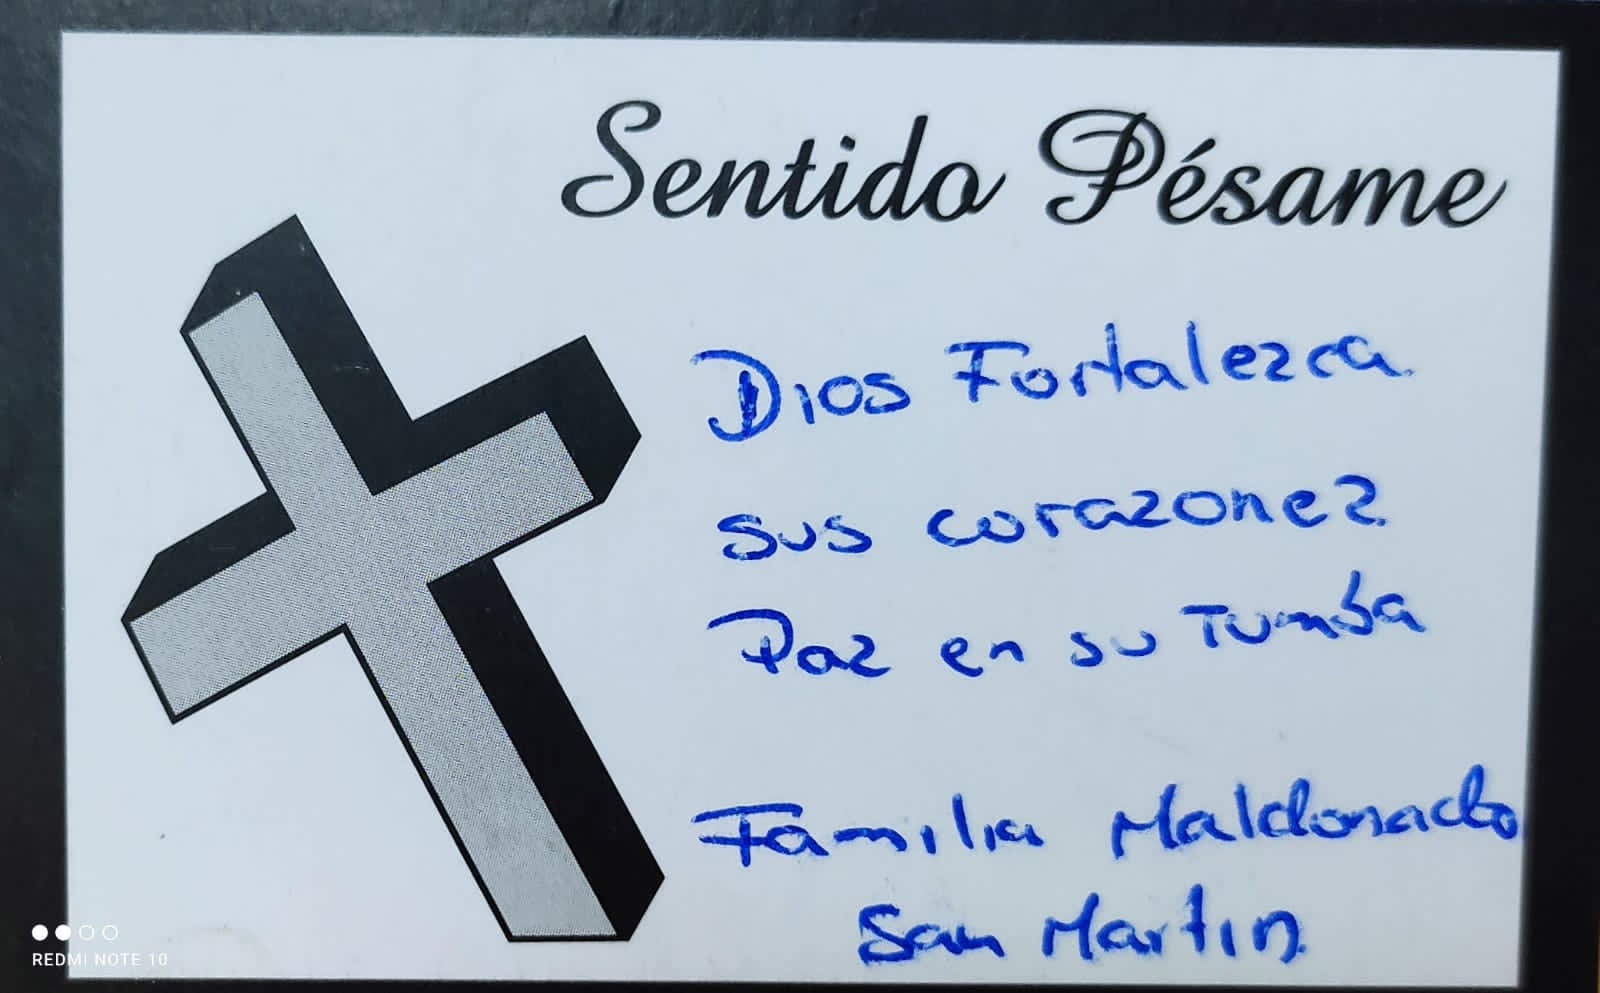 Sentido Pésame
Dios Fortalezca
sus corazonez
Paz en su Tumba
Familia Maldonado
San Martin
REDMI NOTE 10